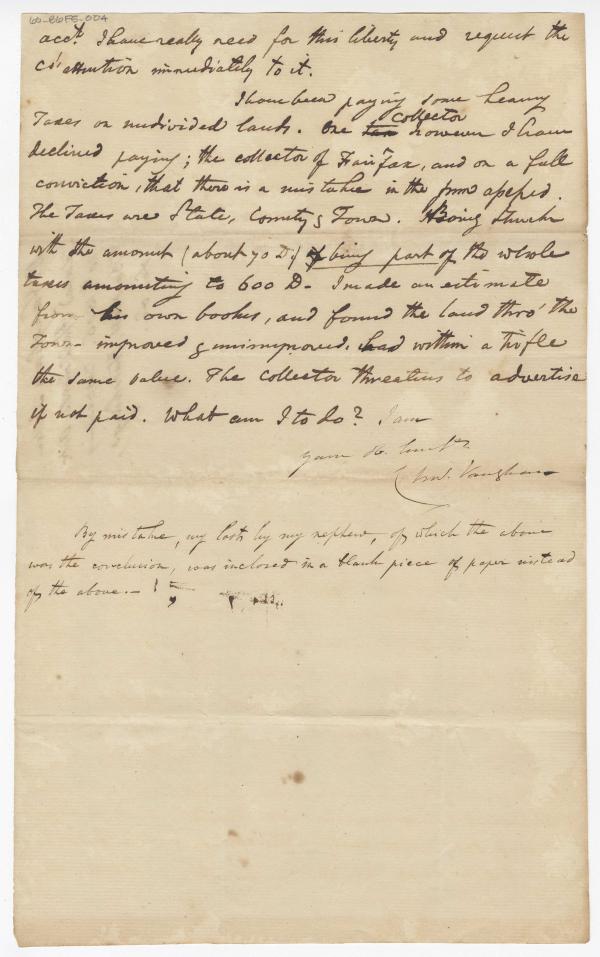 60-B6F5-004
acct. I have really need for this liberty and request the
Co's attention immediately to it.
I have been paying some heavy
Taxes on undivided lands. One tax collector however I have
declined paying; the collector of Fairfax, and on a full
conviction, that there is a mistake in the form assessed.
The Taxes are State, County & Town. Being struck
with the amount (about 70 D.) of being part of the whole
taxes amounting to 600 D - I made an estimate
from his own books, and found the land thro' the
Town - improved & unimproved, had within a trifle
the same value. The collector threatens to advertise
if not paid. What am I to do? I am
your H. Servt.
Chas. Vaughan
By mistake, my last by my nephew, of which the above
was the conclusion, was inclosed in a blank piece of paper instead
of the above. -